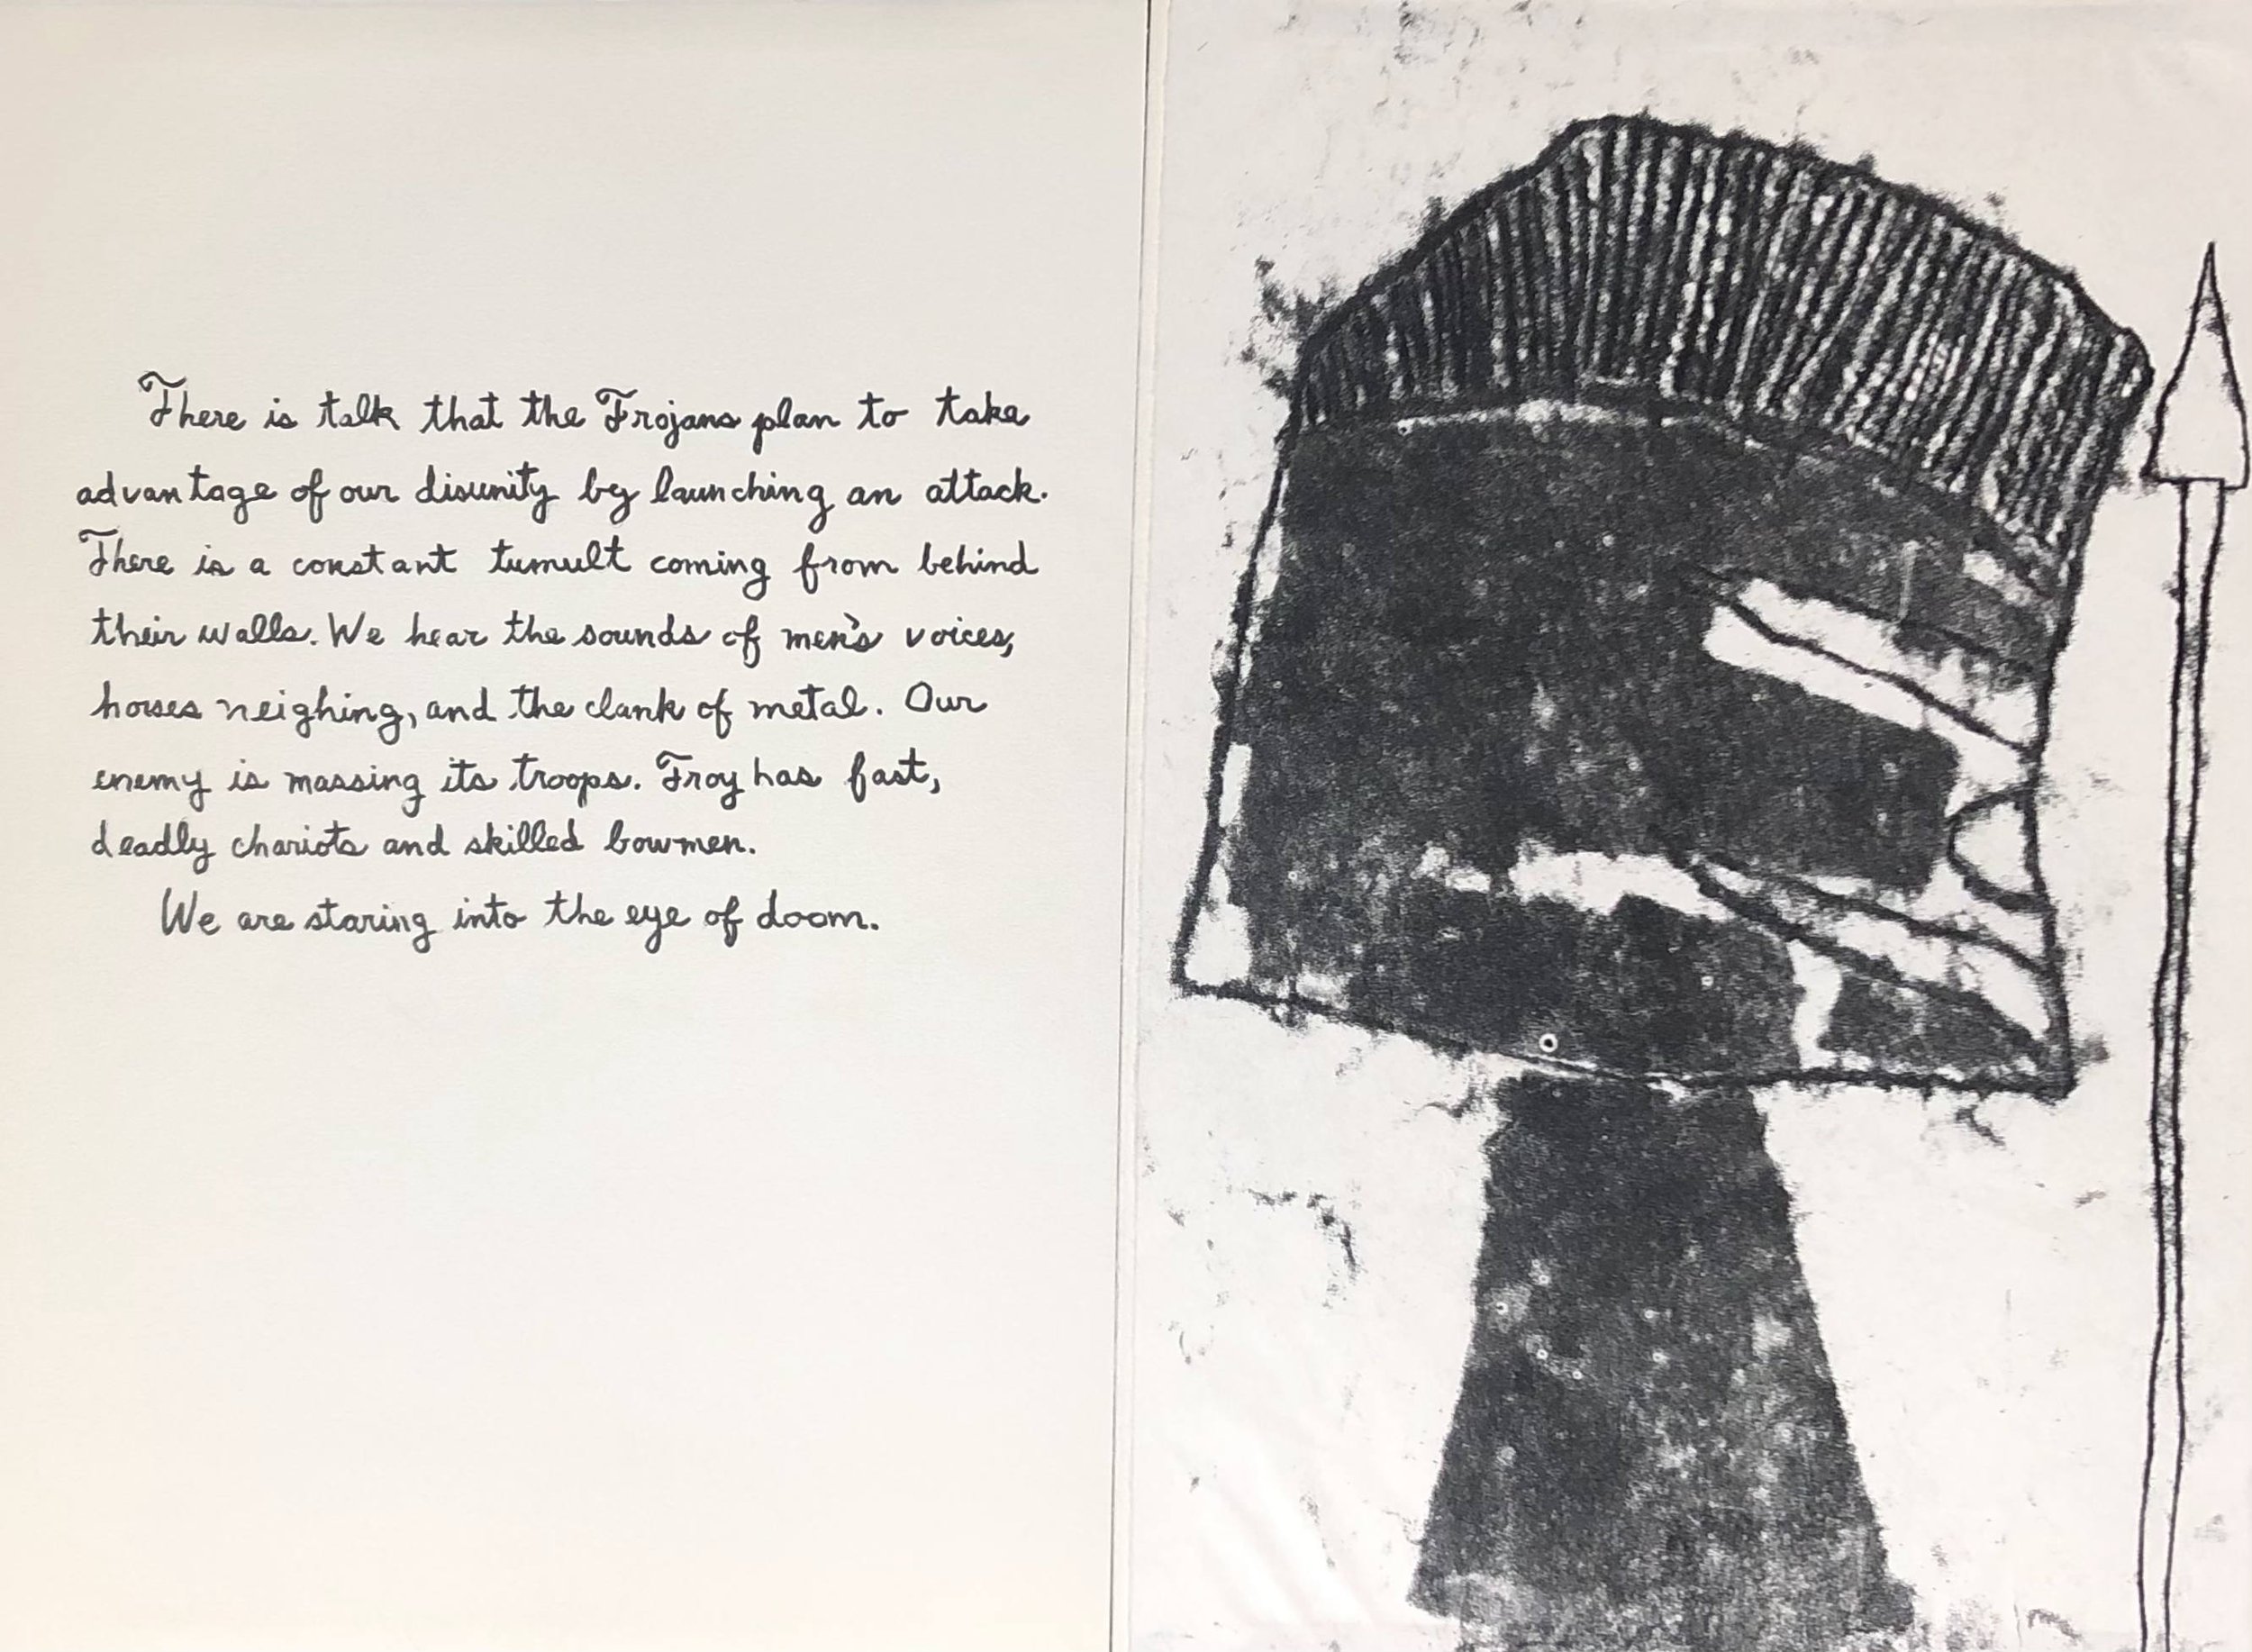 There is talk that the Trojans plan to take
advantage of our disunity by launching an attack.
There is a constant tumult coming from behind
their walls. We hear the sounds of men's voices,
horses neighing, and the clank of metal. Our
enemy is massing its troops. Troy has fast,
deadly chariots and skilled bowmen.
We are staring into the eye of doom.